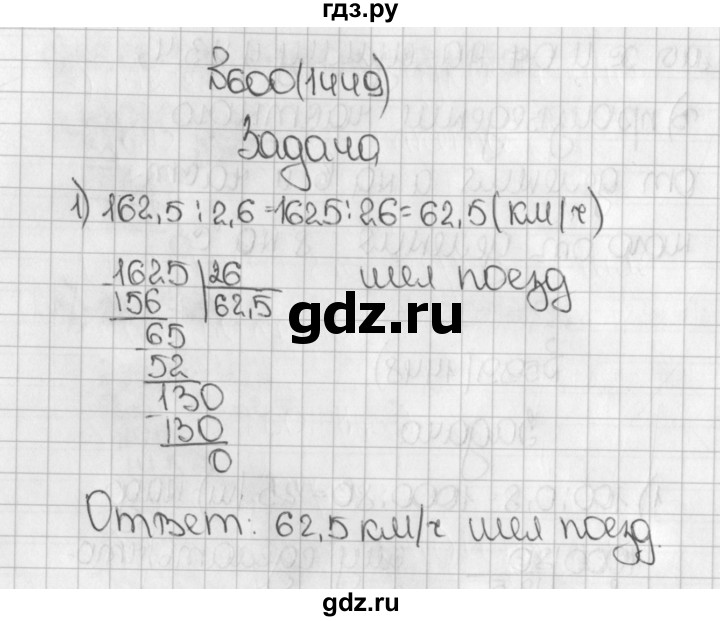 гдз.ру
В600(1449)
Задача
1) 162,5 : 2,6 = 1625 : 26 = 62,5 (км/ч)
шел поезд
1625 | 26
156 | 62,5
65
52
130
130
0
gdz.ru
Ответ: 62,5 км/ч шел поезд.
gdz.ru